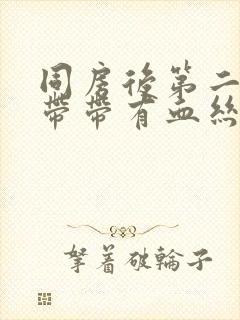 同房後第二
帶帶有血絲
拏着破輪子